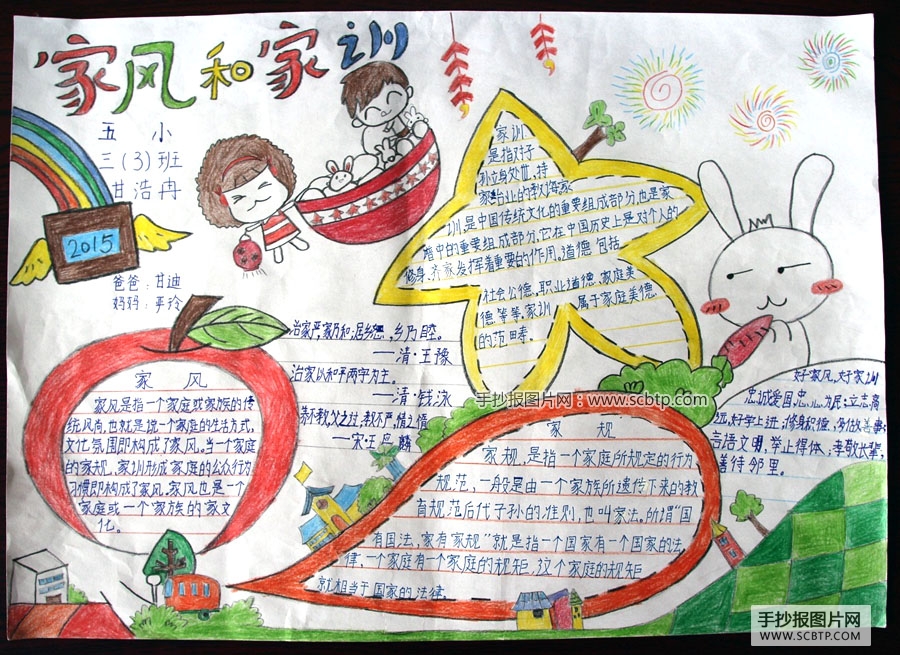 家风和家训
五小
三(3)班
甘浩冉
2015
爸爸:甘迪
妈妈:平玲
家训
是指对子
孙立身处世,持
家治业的教诲家
训,是中国传统文化的重要组成部分,也是家
谱中的重要组成部分,它在中国历史上是对个人的
修身、齐家发挥着重要的作用。道德包括
社会公德,职业道德,家庭美
德等等,家训 属于家庭美德
的范畴。
治家严,家乃和;居乡 ,乡乃
——清·王豫
治家以和平两字为主。
——清·钱泳
家风
家风是指一个家庭或家族的传
统风尚,也就是说一个家庭的生活方式,
文化氛围即构成了家风。当一个家庭
的家规,家训形成家庭的公众行为
习惯即构成了家风。家风也是一个
家庭或一个家族的家文
化。
手抄报图片网:www.scbtp.com
家规
家规,是指一个家庭所规定的行为
规范,一般是由一个家族所遗传下来的教
育规范后代子孙的准则,也叫家法。所谓"国
有国法,家有家规"就是指一个国家有一个国家的法
律,一个家庭有一个家庭的规矩,这个家庭的规矩
就相当于国家的法律
好家风,好家训
忠诚爱国,忠心为民,立志高
远,好学上进,修身积德,务做善事,
言语文明,举止得体,孝敬长辈,
善待邻里。
手抄报图片网
WWW.SCBTP.COM